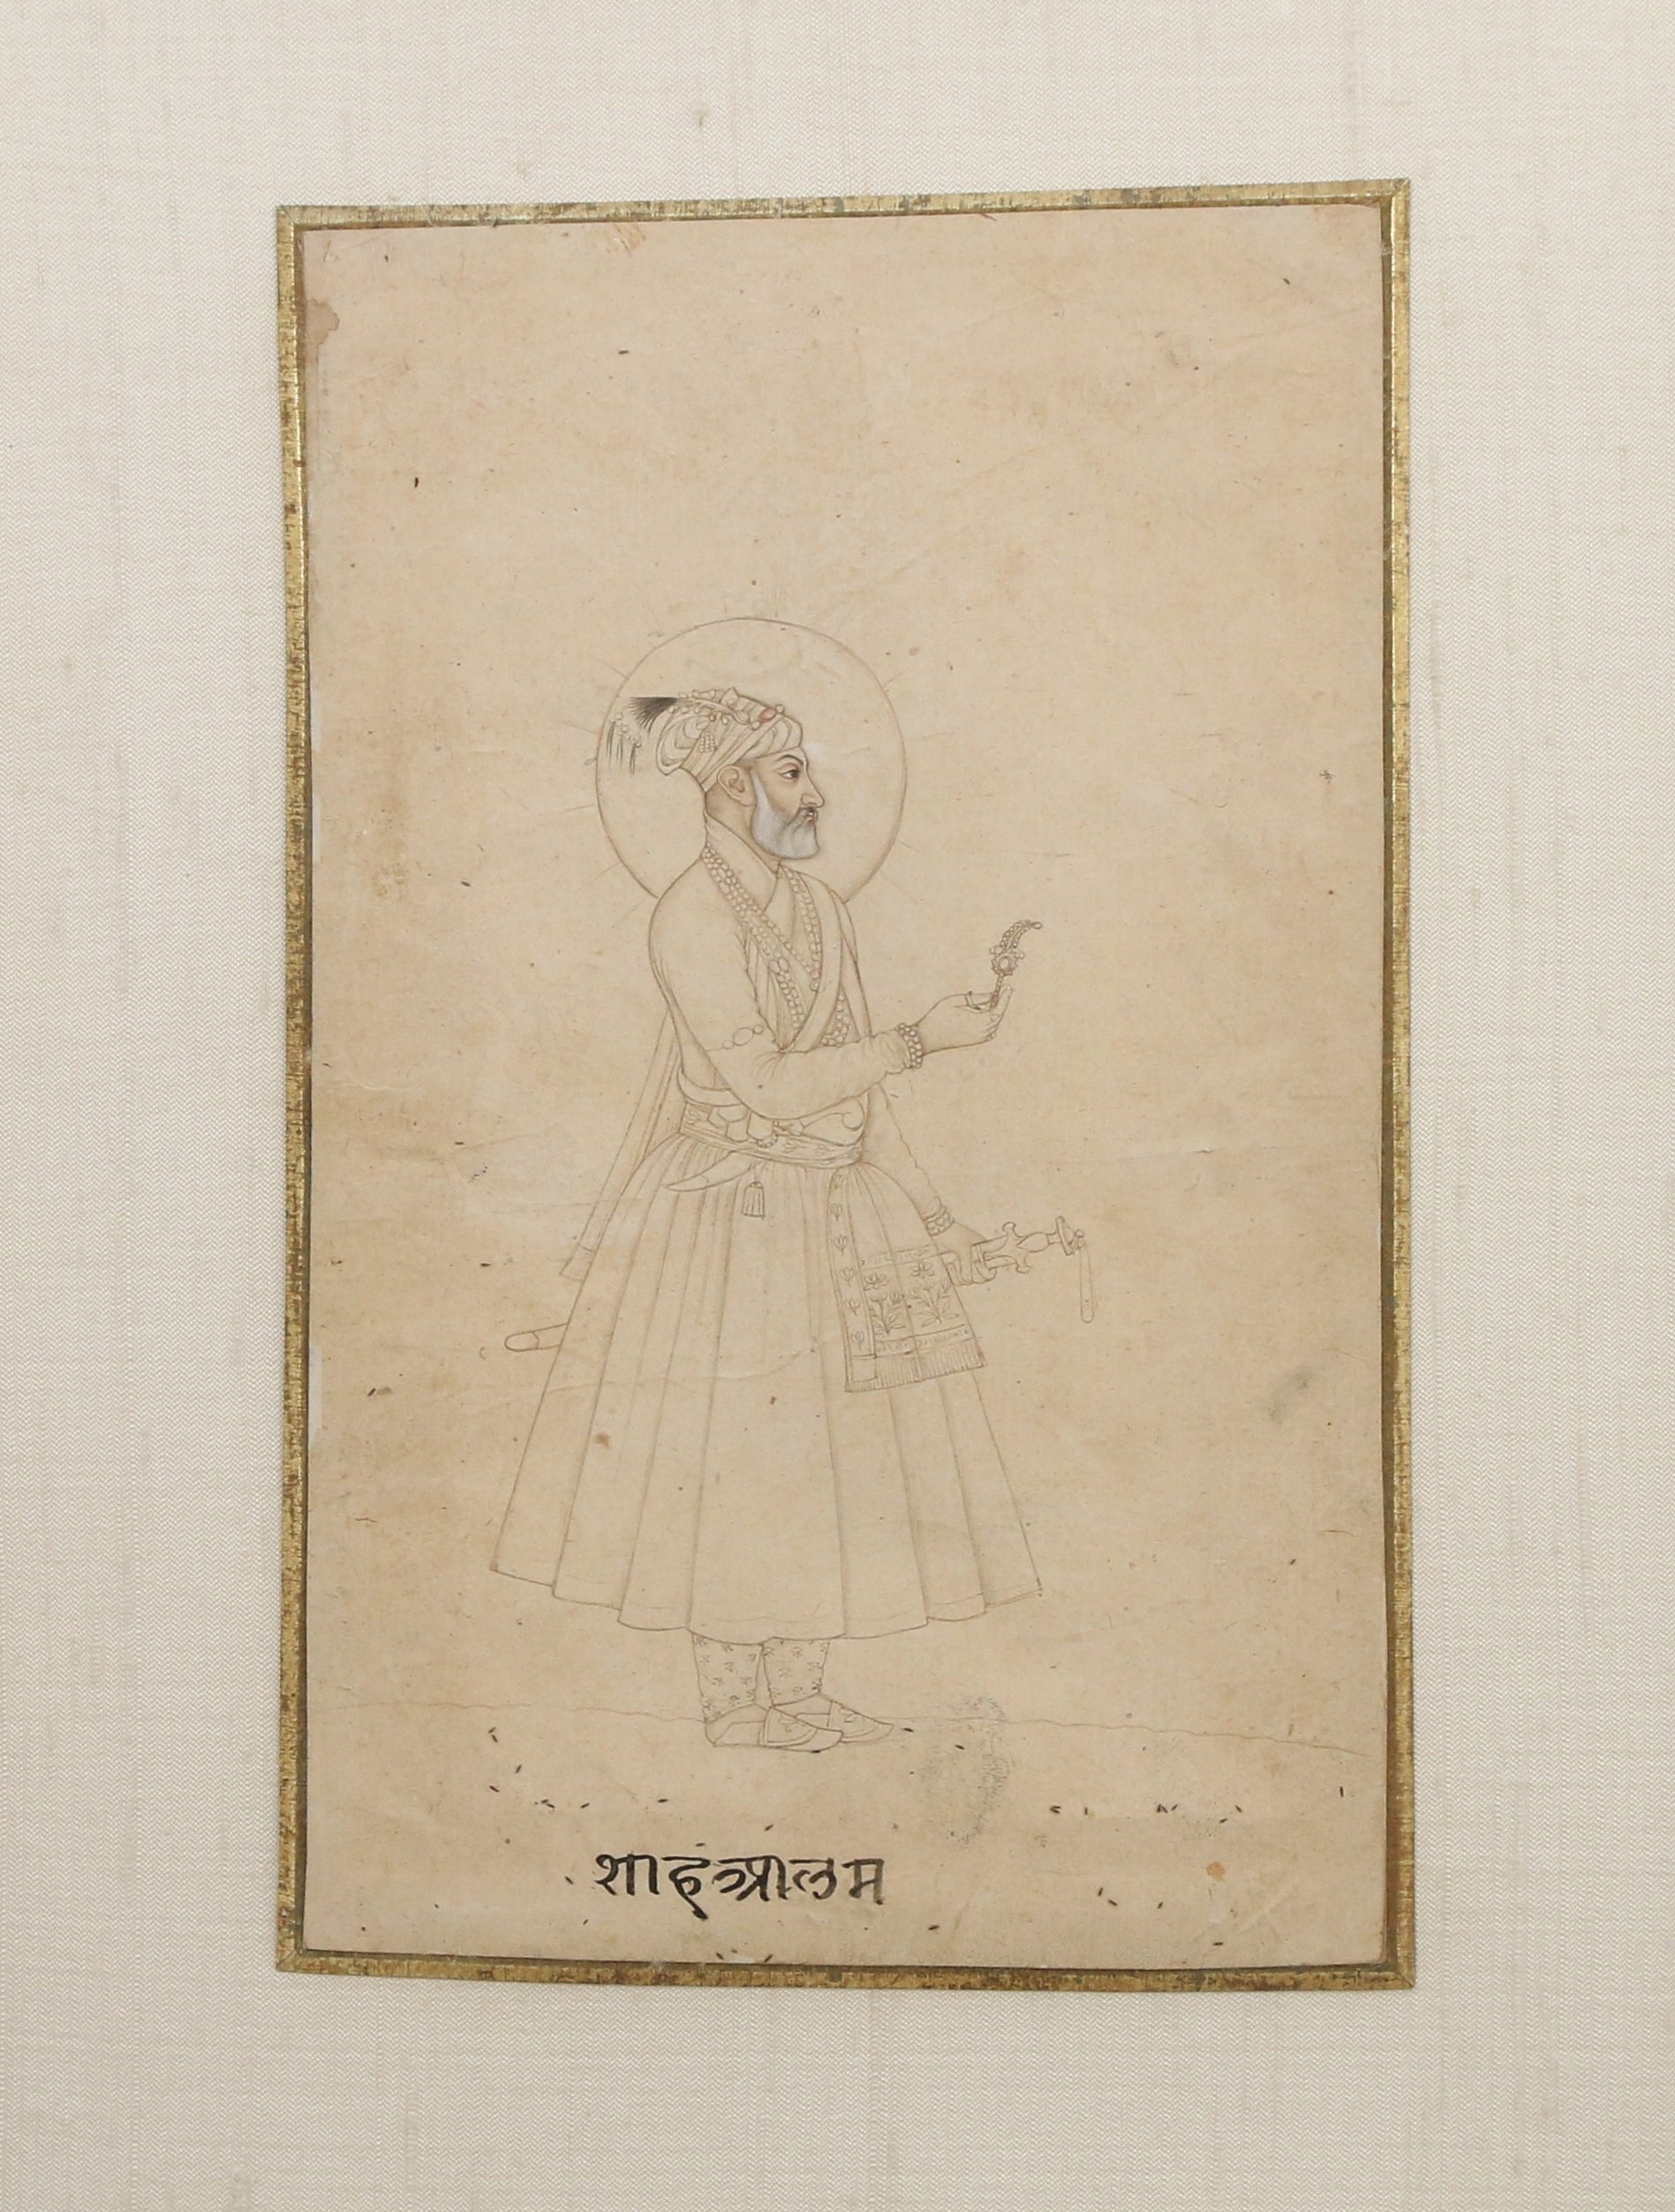 शाहआलम